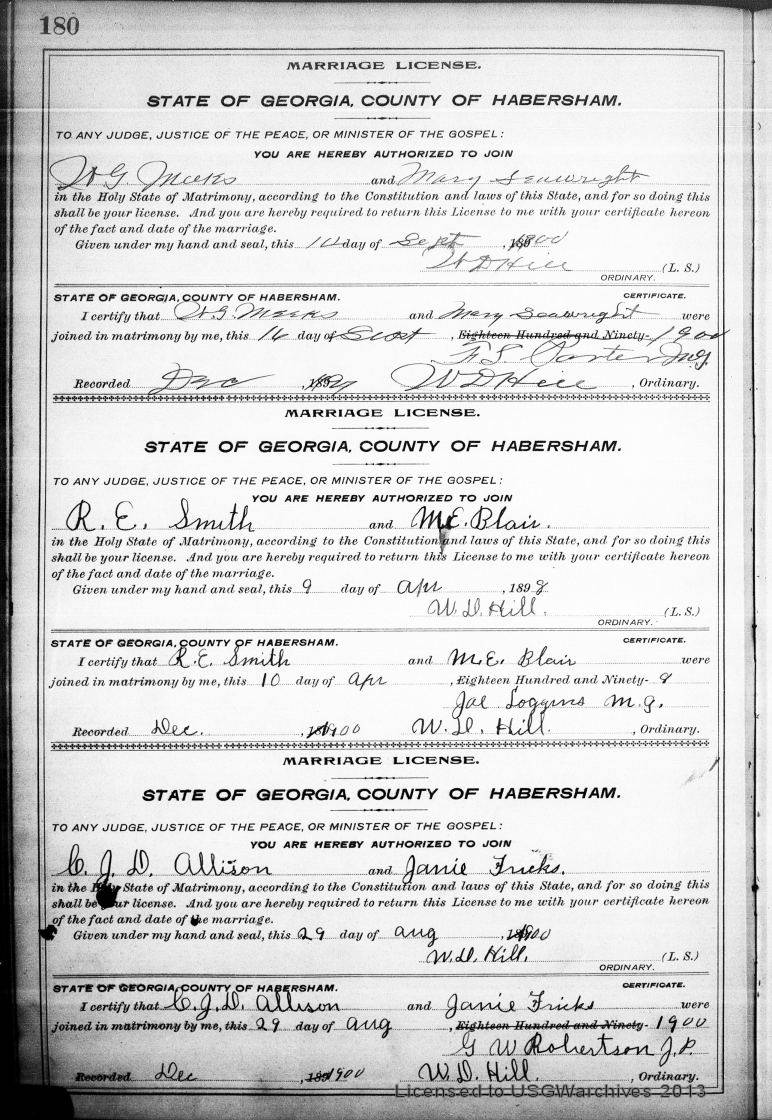 180
MARRIAGE LICENSE.
STATE OF GEORGIA, COUNTY OF HABERSHAM.
TO ANY JUDGE, JUSTICE OF THE PEACE, OR MINISTER OF THE GOSPEL:
YOU ARE HEREBY AUTHORIZED TO JOIN
W.G. Meeks and Mary Seawright
in the Holy State of Matrimony, according to the Constitution and laws of this State, and for so doing this
shall be your license. And you are hereby required to return this License to me with your certificate hereon
of the fact and date of the marriage.
Given under my hand and seal, this day of Sept, 1900
W D Hill (L. S.)
ORDINARY.
STATE OF GEORGIA, COUNTY OF HABERSHAM. CERTIFICATE.
I certify that W.G. Meeks and Mary Seawright were
joined in matrimony by me, this 16 day of Sept, Eighteen Hundred and Ninety- 1900
F. S.
Recorded Dec W D Hill, Ordinary.
MARRIAGE LICENSE.
STATE OF GEORGIA, COUNTY OF HABERSHAM.
TO ANY JUDGE, JUSTICE OF THE PEACE, OR MINISTER OF THE GOSPEL:
YOU ARE HEREBY AUTHORIZED TO JOIN
R. E. Smith and M.E. Blair.
in the Holy State of Matrimony, according to the Constitution and laws of this State, and for so doing this
shall be your license. And you are hereby required to return this License to me with your certificate hereon
of the fact and date of the marriage.
Given under my hand and seal, this 9 day of Apr, 1898
W. D. Hill. (L. S.)
ORDINARY.
STATE OF GEORGIA, COUNTY OF HABERSHAM. CERTIFICATE.
I certify that R.E. Smith and M.E. Blair were
joined in matrimony by me, this 10 day of Apr, Eighteen Hundred and Ninety- 8
Loggins M. G.
Recorded Dec., 1900 W. D. Hill., Ordinary.
MARRIAGE LICENSE.
STATE OF GEORGIA, COUNTY OF HABERSHAM.
TO ANY JUDGE, JUSTICE OF THE PEACE, OR MINISTER OF THE GOSPEL:
YOU ARE HEREBY AUTHORIZED TO JOIN
C. J. D. Allison and Janie Fricks.
in the Holy State of Matrimony, according to the Constitution and laws of this State, and for so doing this
shall be your license. And you are hereby required to return this License to me with your certificate hereon
of the fact and date of the marriage.
Given under my hand and seal, this 29 day of Aug, 1900
W. D. Hill. (L. S.)
ORDINARY.
STATE OF GEORGIA, COUNTY OF HABERSHAM. CERTIFICATE.
I certify that C. J. D. Allison and Janie Fricks were
joined in matrimony by me, this 29 day of Aug, Eighteen Hundred and Ninety- 1900
G W Robertson J. P.
Recorded Dec, 1900 W. D. Hill., Ordinary.
Licensed to USGWarchives 2013